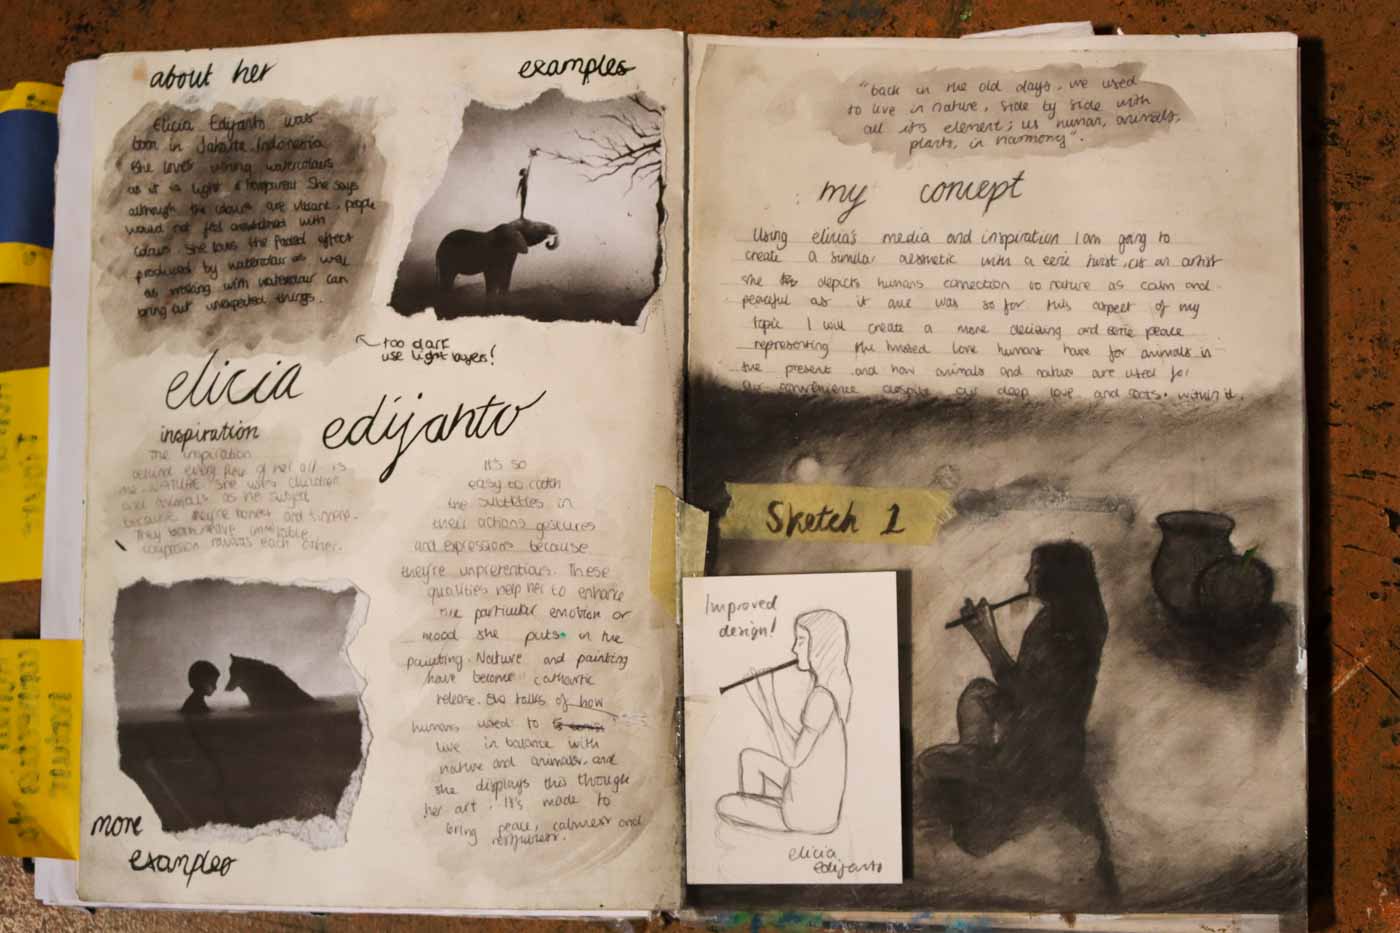 about her
Elicia Edijanto was
born in Jakarta, Indonesia
She loves using watercolours
as it is light & transparent She says
although the colours are vibrant, people
would not feel overwhelmed with
colours. She loves the faded effect
produced by watercolour as well
as working with watercolour can
bring out unexpected things.
examples
too dark
use light layers!
elicia
edijanto
inspiration
The inspiration
behind every piece of her art is
NATURE. She uses children
and animals as the subject
because they're honest and sincere.
They both have
compassion towards each other.
It's so
easy to catch
the subtleties in
their actions gestures
and expressions because
they're unpretentious. These
qualities help her to enhance
the particular emotion or
mood she puts in the
painting. Nature and painting
have become cathartic
release. She talks of how
humans used to
live in balance with
nature and animals, and
she displays this though
her art. It's made to
bring peace, calmness and
more
examples
"back in the old days, we used
to live in nature, side by side with
all it's element; us human, animals,
plants, in harmony".
my concept
Using elicia's media and inspiration I am going to
create a similar aesthetic with a eerie twist, as an artist
she depicts humans connection to nature as calm and
peaceful as it once was so for this aspect of my
topic I will create a more decieving and eerie peace
representing the twisted love humans have for animals in
the present and how animals and nature are used for
our convenience despite our deep love and roots within it.
Sketch 1
Improved
design!
elicia
edijanto